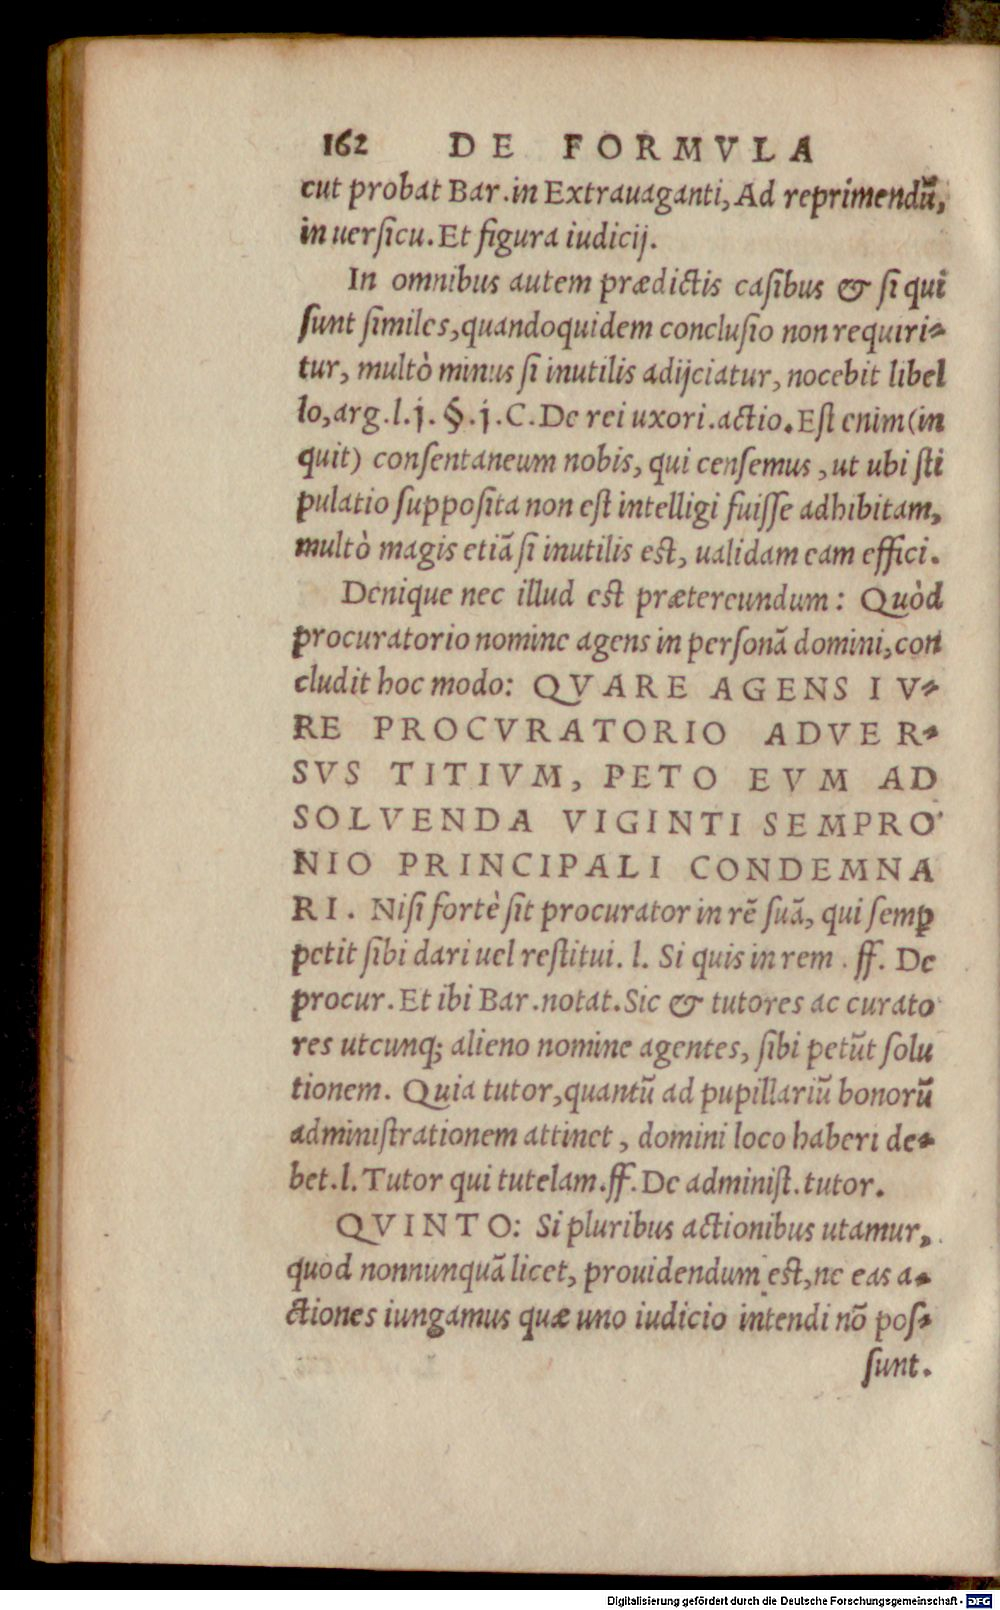 162 DE FORMVLA
cut probat Bar. in Extrauaganti, Ad reprimendũ,
in uersicu. Et figura iudicij.
In omnibus autem prædictis casibus & si qui
sunt similes, quandoquidem conclusio non requiri-
tur, multò minus si inutilis adijciatur, nocebit libel
lo, arg. l. j. §. j. C. De rei uxori. actio. Est enim (in
quit) consentaneum nobis, qui censemus, ut ubi sti
pulatio supposita non est intelligi fuisse adhibitam,
multò magis etiã si inutilis est, ualidam eam effici.
Denique nec illud est prætereundum: Quòd
procuratorio nomine agens in personã domini, con
cludit hoc modo: QVARE AGENS IV-
RE PROCVRATORIO ADVER-
SVS TITIVM, PETO EVM AD
SOLVENDA VIGINTI SEMPRO
NIO PRINCIPALI CONDEMNA
RI. Nisi fortè sit procurator in rẽ suã, qui semꝑ
petit sibi dari uel restitui. l. Si quis in rem. ff. De
procur. Et ibi Bar. notat. Sic & tutores ac curato
res utcunq; alieno nomine agentes, sibi petũt solu
tionem. Quia tutor, quantũ ad pupillariũ bonorũ
administrationem attinet, domini loco haberi de-
bet. l. Tutor qui tutelam. ff. De administ. tutor.
QVINTO: Si pluribus actionibus utamur,
quod nonnunquã licet, prouidendum est, ne eas a-
ctiones iungamus quæ uno iudicio intendi nõ pos-
sunt.
Digitalisierung gefördert durch die Deutsche Forschungsgemeinschaft - DFG